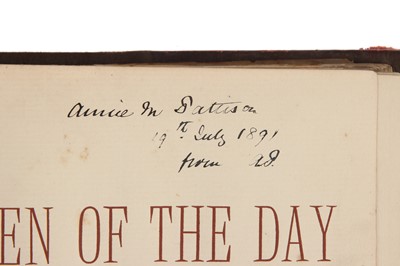 Annie M Pattison
19th July 1891
from
EN OF THE DAY